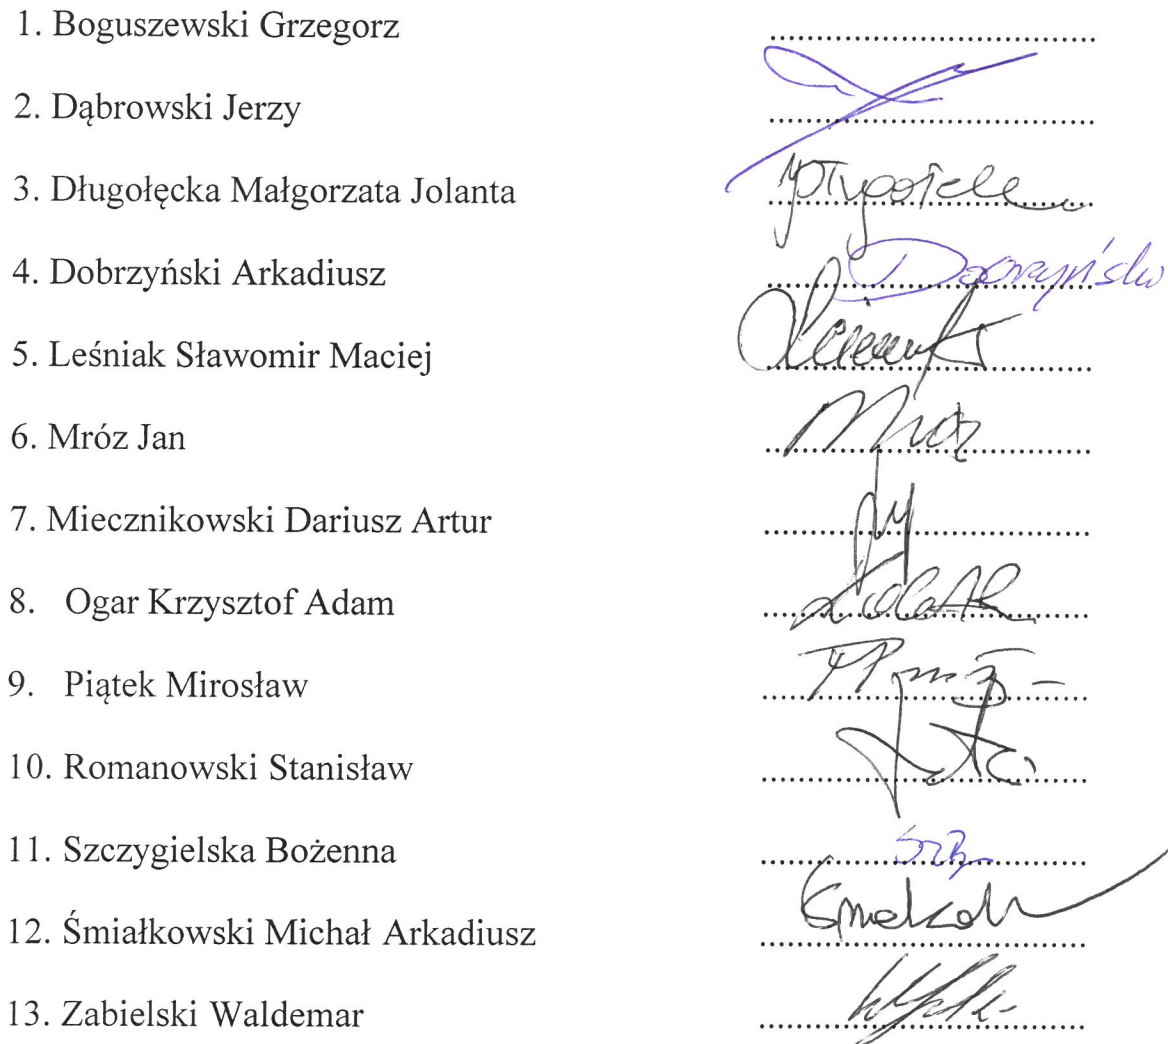 1. Boguszewski Grzegorz ..............................
2. Dąbrowski Jerzy ..............................
3. Długołęcka Małgorzata Jolanta ..............................
4. Dobrzyński Arkadiusz .............................. Dobrzyński
5. Leśniak Sławomir Maciej ..............................
6. Mróz Jan .............................. Mróz
7. Miecznikowski Dariusz Artur ..............................
8. Ogar Krzysztof Adam ..............................
9. Piątek Mirosław ..............................
10. Romanowski Stanisław ..............................
11. Szczygielska Bożenna ..............................
12. Śmiałkowski Michał Arkadiusz ..............................
13. Zabielski Waldemar ..............................